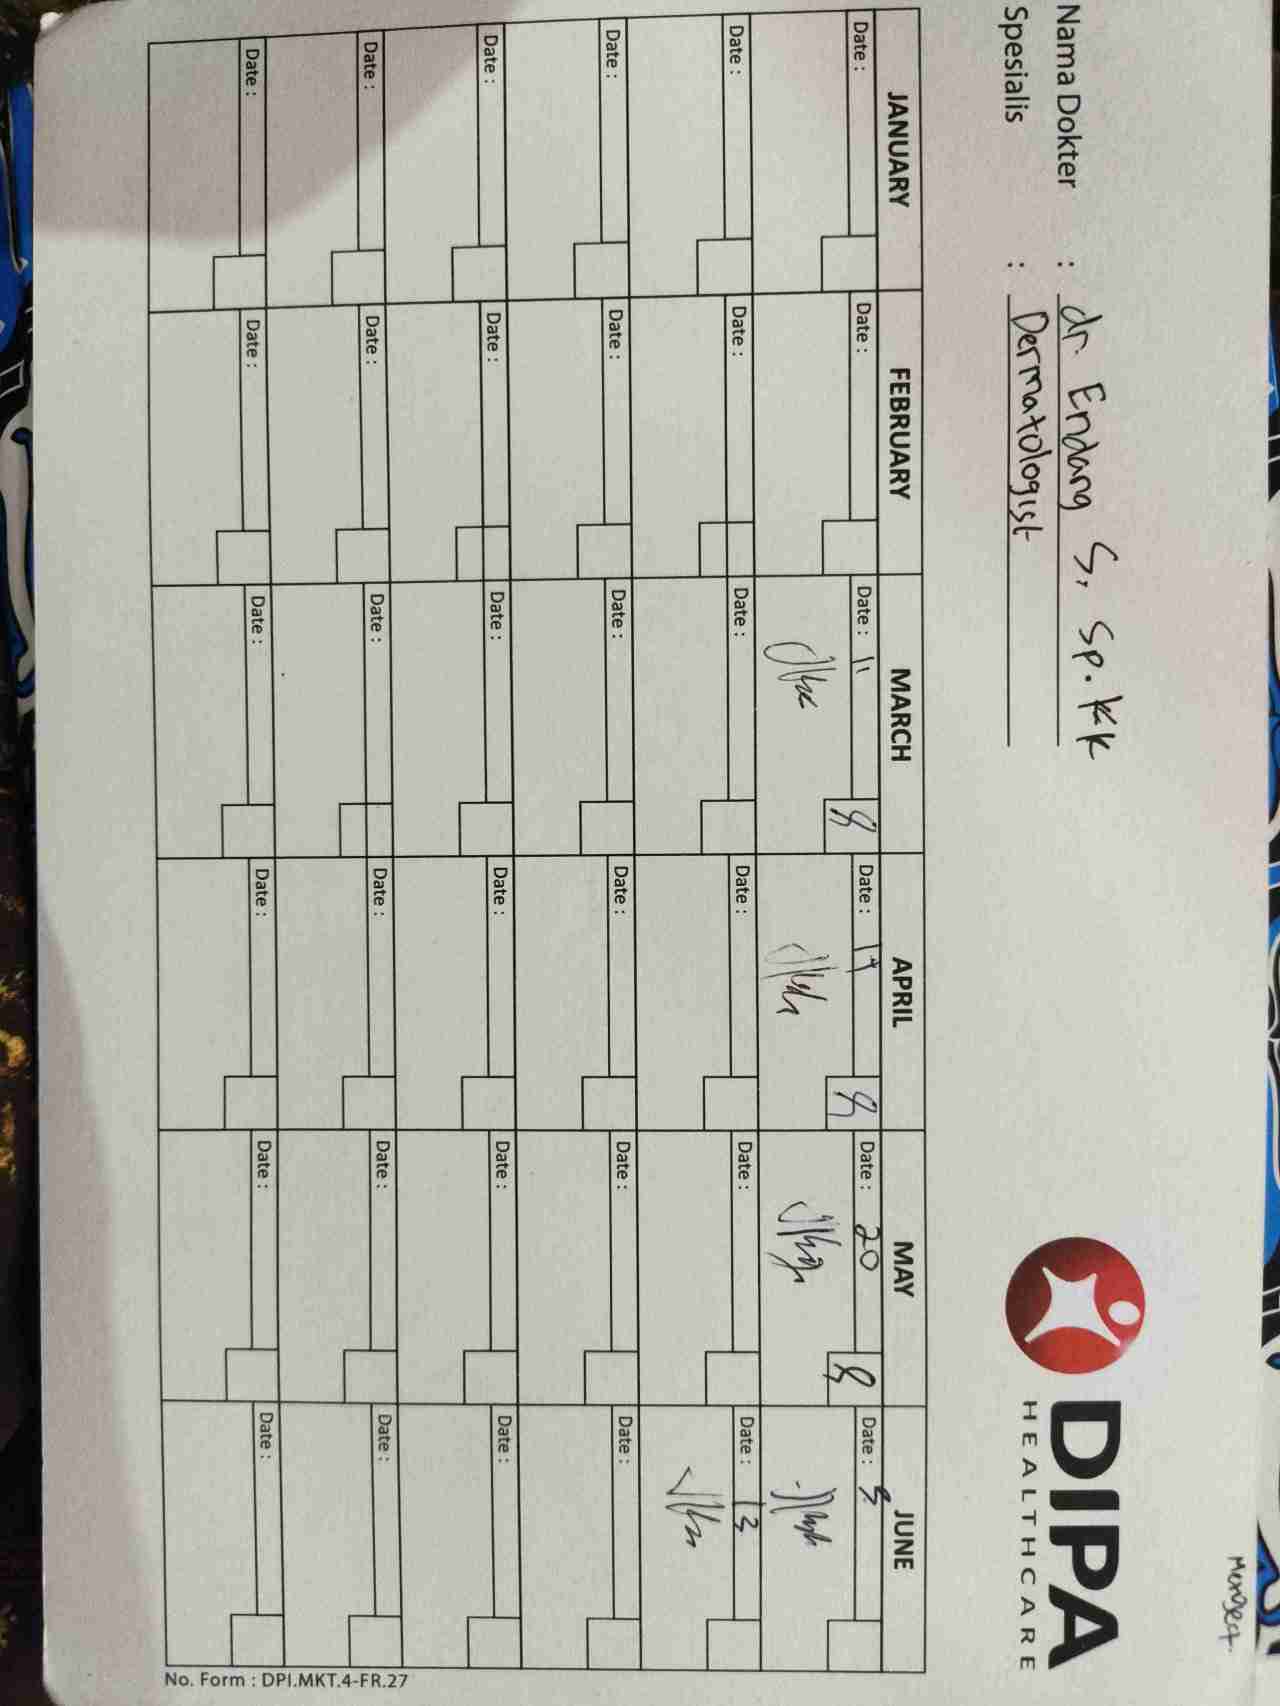 Mergect.
Nama Dokter : dr. Endang S, Sp.KK
Spesialis : Dermatologist
DIPA
HEALTHCARE
JANUARY FEBRUARY MARCH APRIL MAY JUNE
Date : Date : Date : 11 Date : 19 Date : 20 Date : 3
Date : Date : Date : Date : Date : Date : 13
Date : Date : Date : Date : Date : Date :
Date : Date : Date : Date : Date : Date :
Date : Date : Date : Date : Date : Date :
Date : Date : Date : Date : Date : Date :
No. Form : DPI.MKT.4-FR.27